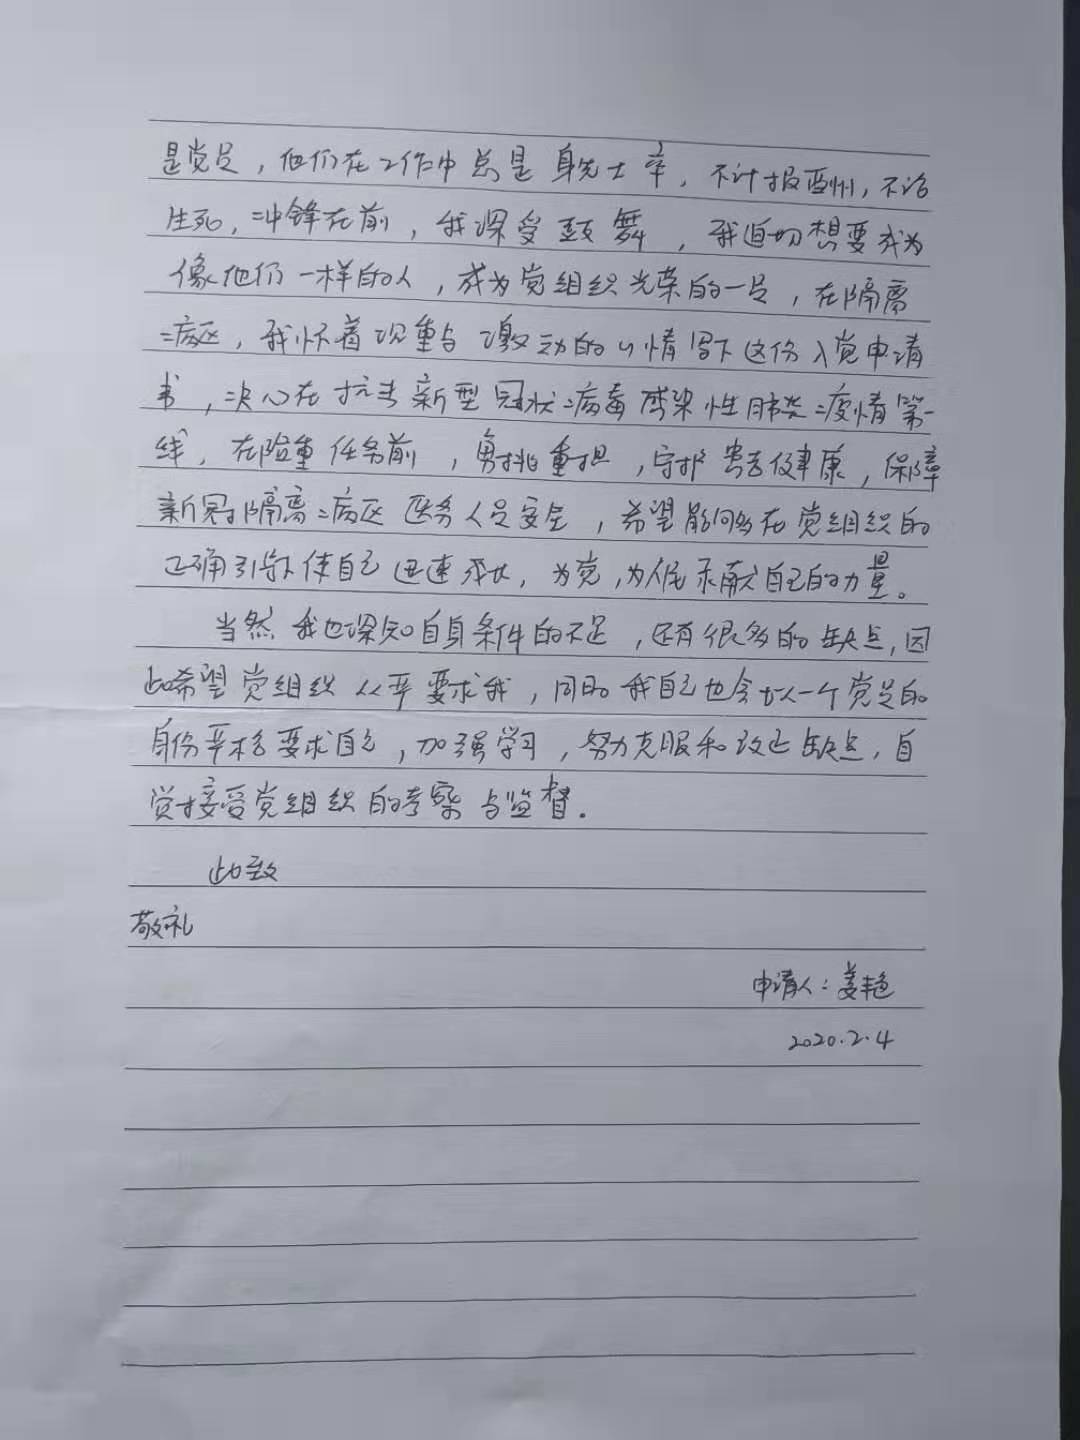 是党员，他们在工作中总是身先士卒，不计报酬，不论
生死，冲锋在前，我深受鼓舞，我迫切想要成为
像他们一样的人，成为党组织光荣的一员，在隔离
病区，我怀着沉重与激动的心情写下这份入党申请
书，决心在抗击新型冠状病毒感染性肺炎疫情第一
线，在险重任务前，勇挑重担，守护患者健康，保障
新冠隔离病区医务人员安全，希望能够在党组织的
正确引导下使自己迅速成长，为党，为人民贡献自己的力量。
当然我也深知自身条件的不足，还有很多的缺点，因
此希望党组织从严要求我，同时我自己也会以一个党员的
身份严格要求自己，加强学习，努力克服和改正缺点，自
觉接受党组织的考察与监督．
此致
敬礼
申请人：姜艳
2020.2.4